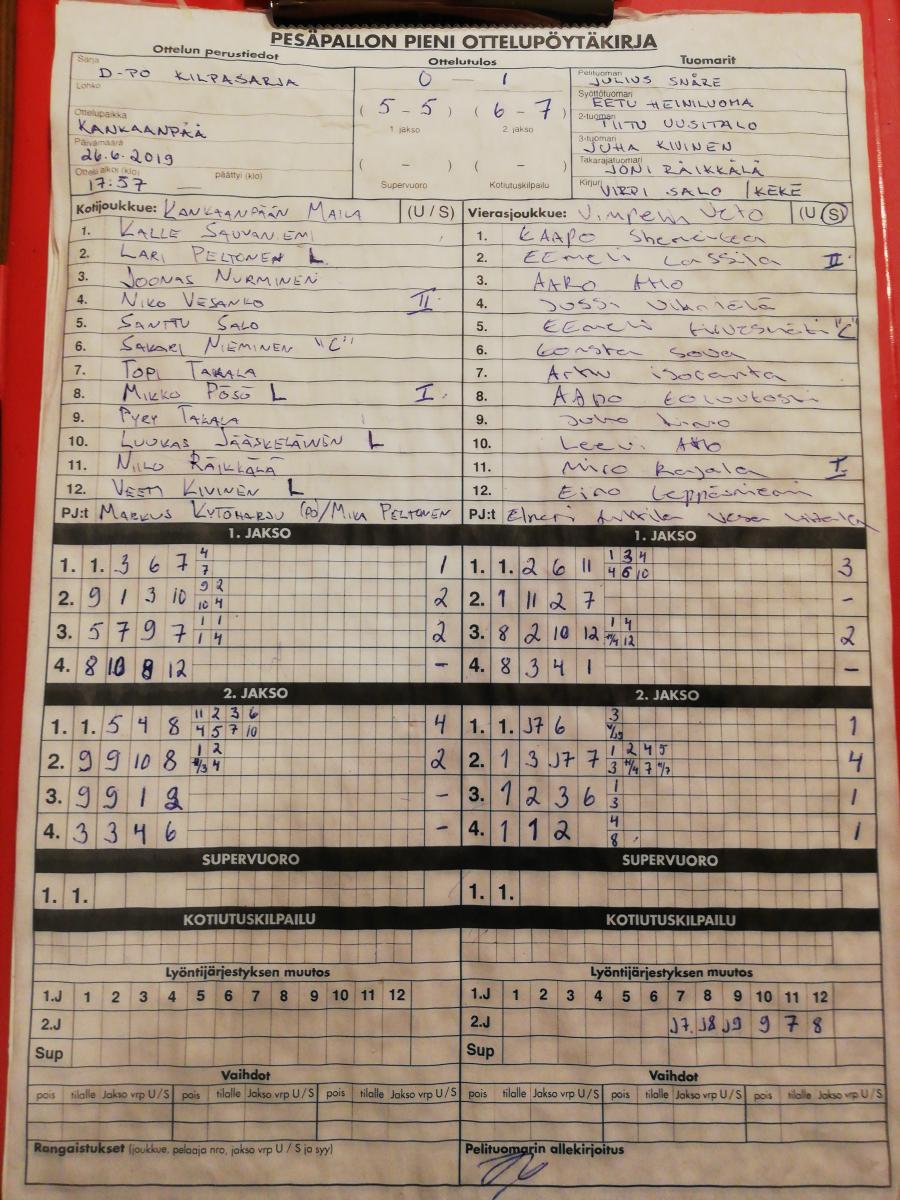 PESÄPALLON PIENI OTTELUPÖYTÄKIRJA
Ottelun perustiedot
Sarja
D-PO KILPASARJA
Lohko
Ottelupaikka
KANKAANPÄÄ
Päivämäärä
26.6.2019
Ottelu alkoi (klo) päättyi (klo)
17:57 —
Ottelutulos
0 — 1
( 5 - 5 ) ( 6 - 7 )
1. jakso 2. jakso
( - ) ( - )
Supervuoro Kotiutuskilpailu
Tuomarit
Pelituomari
JULIUS SNÅRE
Syöttötuomari
EETU HEINILUOMA
2-tuomari
TIITU UUSITALO
3-tuomari
JUHA KIVINEN
Takarajatuomari
JONI RÄIKKÄLÄ
Kirjuri
VIRPI SALO / KEKE
Kotijoukkue: KANKAANPÄÄN MAILA (U / S)
1. KALLE SAUVANIEMI
2. LARI PELTONEN L
3. JOONAS NURMINEN
4. NIKO VESANKO II
5. SANTTU SALO
6. SAKARI NIEMINEN "C"
7. TOPI TAKALA
8. MIKKO PÖSÖ L I
9. PYRY TAKALA
10. LUUKAS JÄÄSKELÄINEN L
11. NIILO RÄIKKÄLÄ
12. VEETI KIVINEN L
PJ:t MARKUS KYTÖHARJU (PO)/MIKA PELTONEN
Vierasjoukkue: Vimpelin Veto (U / S)
1. KAAPO
2. EEmeli Lassila II
3. AARO Aho
4. Jussi
5. EEmeli "C"
6. Konsta
7. Arttu
8. AApo
9. Juho
10. Leevi Aho
11. Miro Rajala I
12. Eino Leppäsniemi
PJ:t Elmeri Vesa
1. JAKSO
1. 1. 3 6 7 4 1
7
2. 9 1 3 10 9 2 2
10 4
3. 5 7 9 7 1 1 2
1 4
4. 8 10 8 12 -
1. JAKSO
1. 1. 2 6 11 1 3 4 3
4 6 10
2. 1 11 2 7 -
3. 8 2 10 12 1 4 2
12
4. 8 3 4 1 -
2. JAKSO
1. 1. 5 4 8 11 2 3 6 4
4 5 7 10
2. 9 9 10 8 1 2 2
4
3. 9 9 1 2 -
4. 3 3 4 6 -
2. JAKSO
1. 1. J7 6 3 1
2. 1 3 J7 7 1 2 4 5 4
3 7
3. 1 2 3 6 1 1
3
4. 1 1 2 4 1
8
SUPERVUORO
1. 1.
SUPERVUORO
1. 1.
KOTIUTUSKILPAILU
KOTIUTUSKILPAILU
Lyöntijärjestyksen muutos
1.J 1 2 3 4 5 6 7 8 9 10 11 12
2.J
Sup
Lyöntijärjestyksen muutos
1.J 1 2 3 4 5 6 7 8 9 10 11 12
2.J J7 J8 J9 9 7 8
Sup
Vaihdot
pois tilalle Jakso vrp U / S pois tilalle Jakso vrp U / S pois tilalle Jakso vrp U / S
Vaihdot
pois tilalle Jakso vrp U / S pois tilalle Jakso vrp U / S pois tilalle Jakso vrp U / S
Rangaistukset (joukkue, pelaaja nro, jakso vrp U / S ja syy)
Pelituomarin allekirjoitus